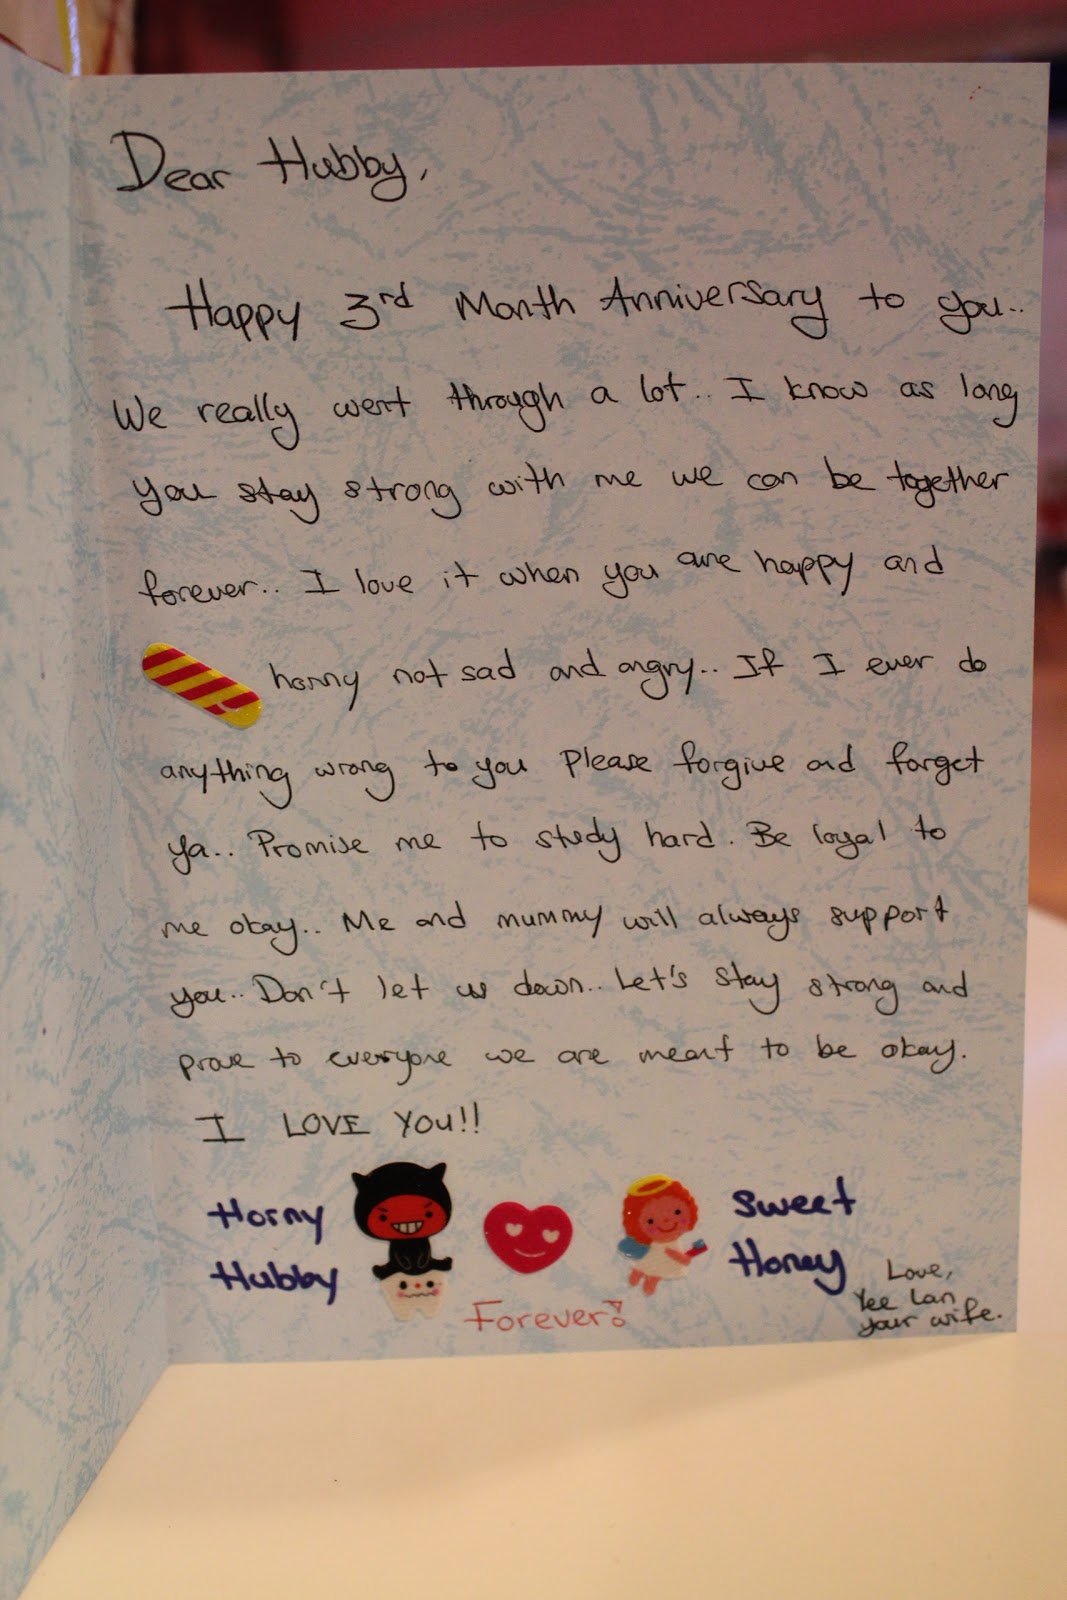 Dear Hubby,
Happy 3rd Month Anniversary to you..
We really went through a lot.. I know as long
you stay strong with me we can be together
forever.. I love it when you are happy and
horny not sad and angry.. If I ever do
anything wrong to you Please forgive and forget
ya.. Promise me to study hard. Be loyal to
me okay.. Me and mummy will always support
you.. Don't let us down.. Let's stay strong and
prove to everyone we are meant to be okay.
I LOVE YOU!!
Horny Hubby
Sweet Honey
Forever!
Love,
Yee Lan
your wife.